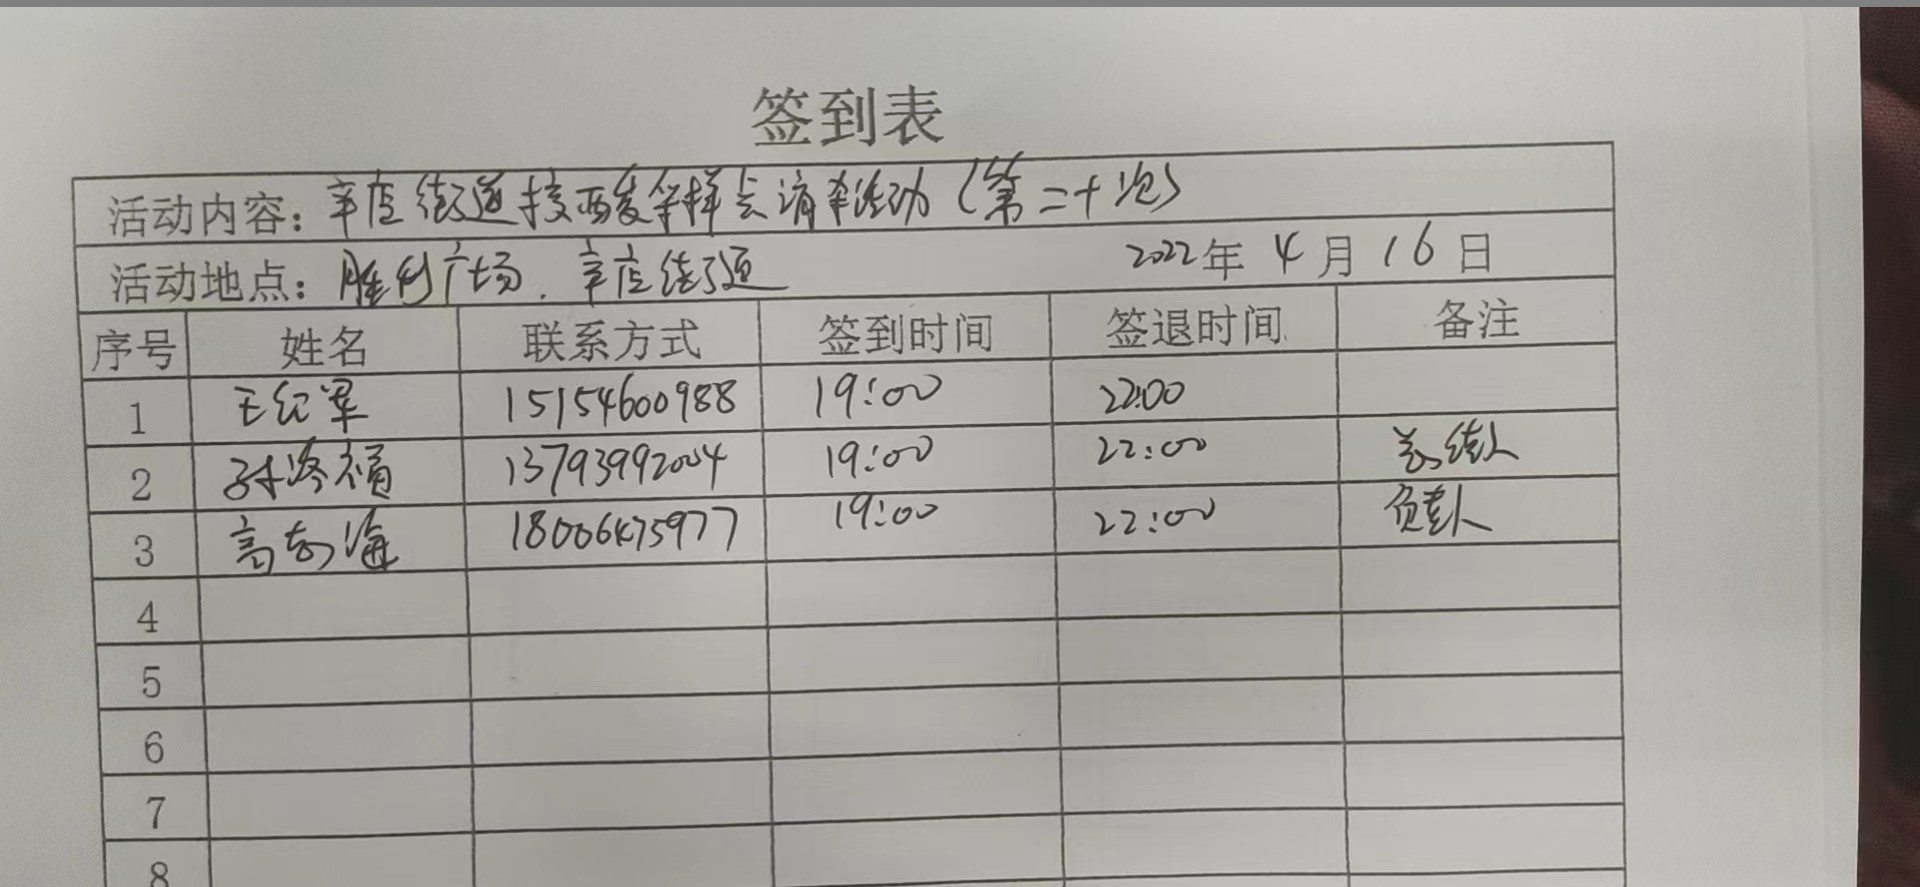 签到表
活动内容：辛店街道核酸采样点消杀活动（第二十次）
活动地点：胜利广场、辛店街道 2022年4月16日
序号 姓名 联系方式 签到时间 签退时间 备注
1 王纪军 15154600988 19:00 22:00
2 孙 福 13793992004 19:00 22:00
3 高 海 18006475977 19:00 22:00 负责人
4
5
6
7
8